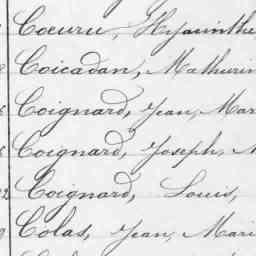 Coeuru, Hyacinthe
Coicadan, Mathurin
Coignard, Jean, Mar
Coignard, Joseph, M
Coignard, Louis,
Colas, Jean, Mari